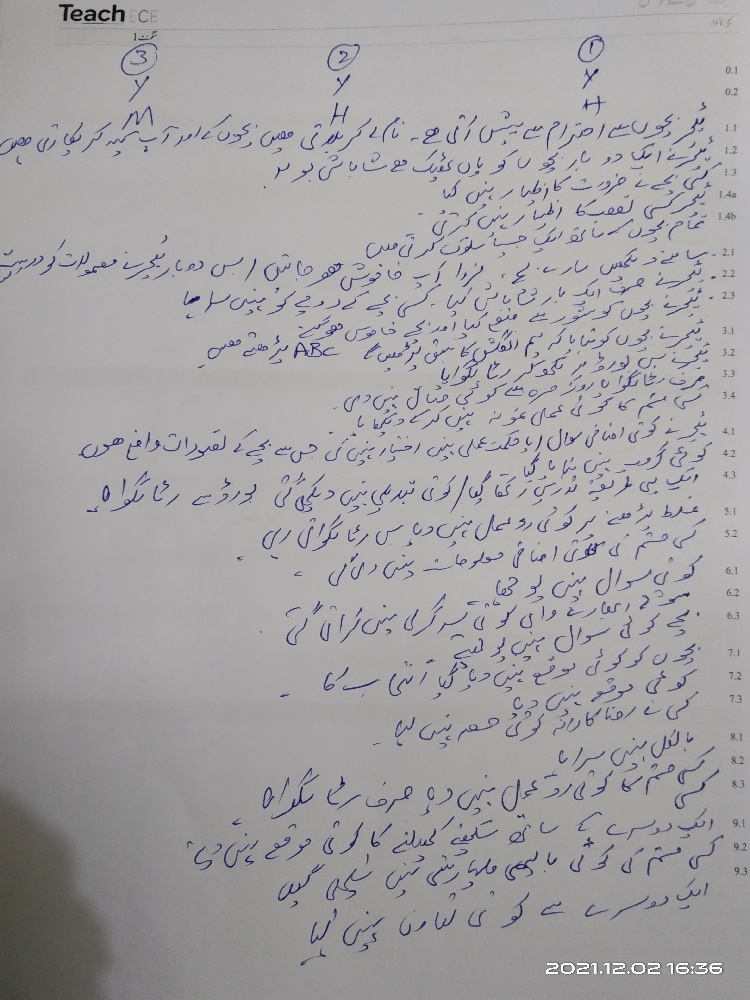 Teach ECE
③ ② ① 0.1
Y Y Y 0.2
M H H
ٹیچر بچوں سے احترام سے پیش آتی ہے۔ نام لے کر بلاتی ہیں بچوں کے اور آپ کہہ کر پکارتی ہیں 1.1
ٹیچر نے ایک دو بار بچوں کو ہاں ٹھیک ہے شاباش بولا 1.2
کسی بچے نے ضرورت کا اظہار نہیں کیا 1.3
ٹیچر کسی تعصب کا اظہار نہیں کرتی۔ 1.4a
تمام بچوں کے ساتھ ایک جیسا سلوک کرتی ہیں 1.4b
سامنے دیکھیں سارے بچے، خاموش ھو جائیں / بس دو بار ٹیچر نے معمولات کو درست 2.1
ٹیچر نے صرف ایک بار شاباش کہا۔ کسی بچے کے رویے کو نہیں سراہا 2.2
ٹیچر نے بچوں کو شور سے منع کیا اور بچے خاموش ھو گئے 2.3
ٹیچر نے بچوں کو بتایا کہ ہم انگلش کا سبق پڑھیں گے ABC پڑھتے ھیں 3.1
ٹیچر نے بس بورڈ پر لکھ کر رٹا لگوایا 3.2
صرف رٹا لگوایا روزمرہ سے کوئی مثال نہیں دی۔ 3.3
کسی قسم کا کوئی عملی نمونہ نہیں کرکے دکھایا 3.4
ٹیچر نے کوئی اضافی سوال / یا حکمت عملی نہیں اختیار نہیں کی جس سے بچے کے تصورات واضح ھوں 4.1
کوئی گروپ نہیں بنایا گیا 4.2
ایک ہی طریقہ تدریس رکھا گیا / کوئی تبدیلی نہیں دیکھی گئی بورڈ سے رٹا لگوایا۔ 4.3
غلط پڑھنے پر کوئی رد عمل نہیں دیا بس رٹا لگواتی رہی۔ 5.1
کسی قسم کی کوئی اضافی معلومات نہیں دی گئی۔ 5.2
کوئی سوال نہیں پوچھا 6.1
سوچ ابھارنے والی کوئی سرگرمی نہیں کرائی گئی 6.2
بچے کوئی سوال نہیں پوچھتے 6.3
بچوں کو کوئی موقع نہیں دیا گیا انتخاب کا۔ 7.1
کوئی موقع نہیں دیا 7.2
کسی نے رضاکارانہ کوئی حصہ نہیں لیا۔ 7.3
بالکل نہیں سراہا 8.1
کسی قسم کا کوئی رد عمل نہیں دیا صرف رٹا لگوایا۔ 8.2
کسی 8.3
ایک دوسرے کے ساتھ سیکھنے کھیلنے کا کوئی موقع نہیں دیا۔ 9.1
کسی قسم کی کوئی باہمی مہارتیں نہیں سکھائی گئیں 9.2
ایک دوسرے سے کوئی تعاون نہیں کیا 9.3
2021.12.02 16:36